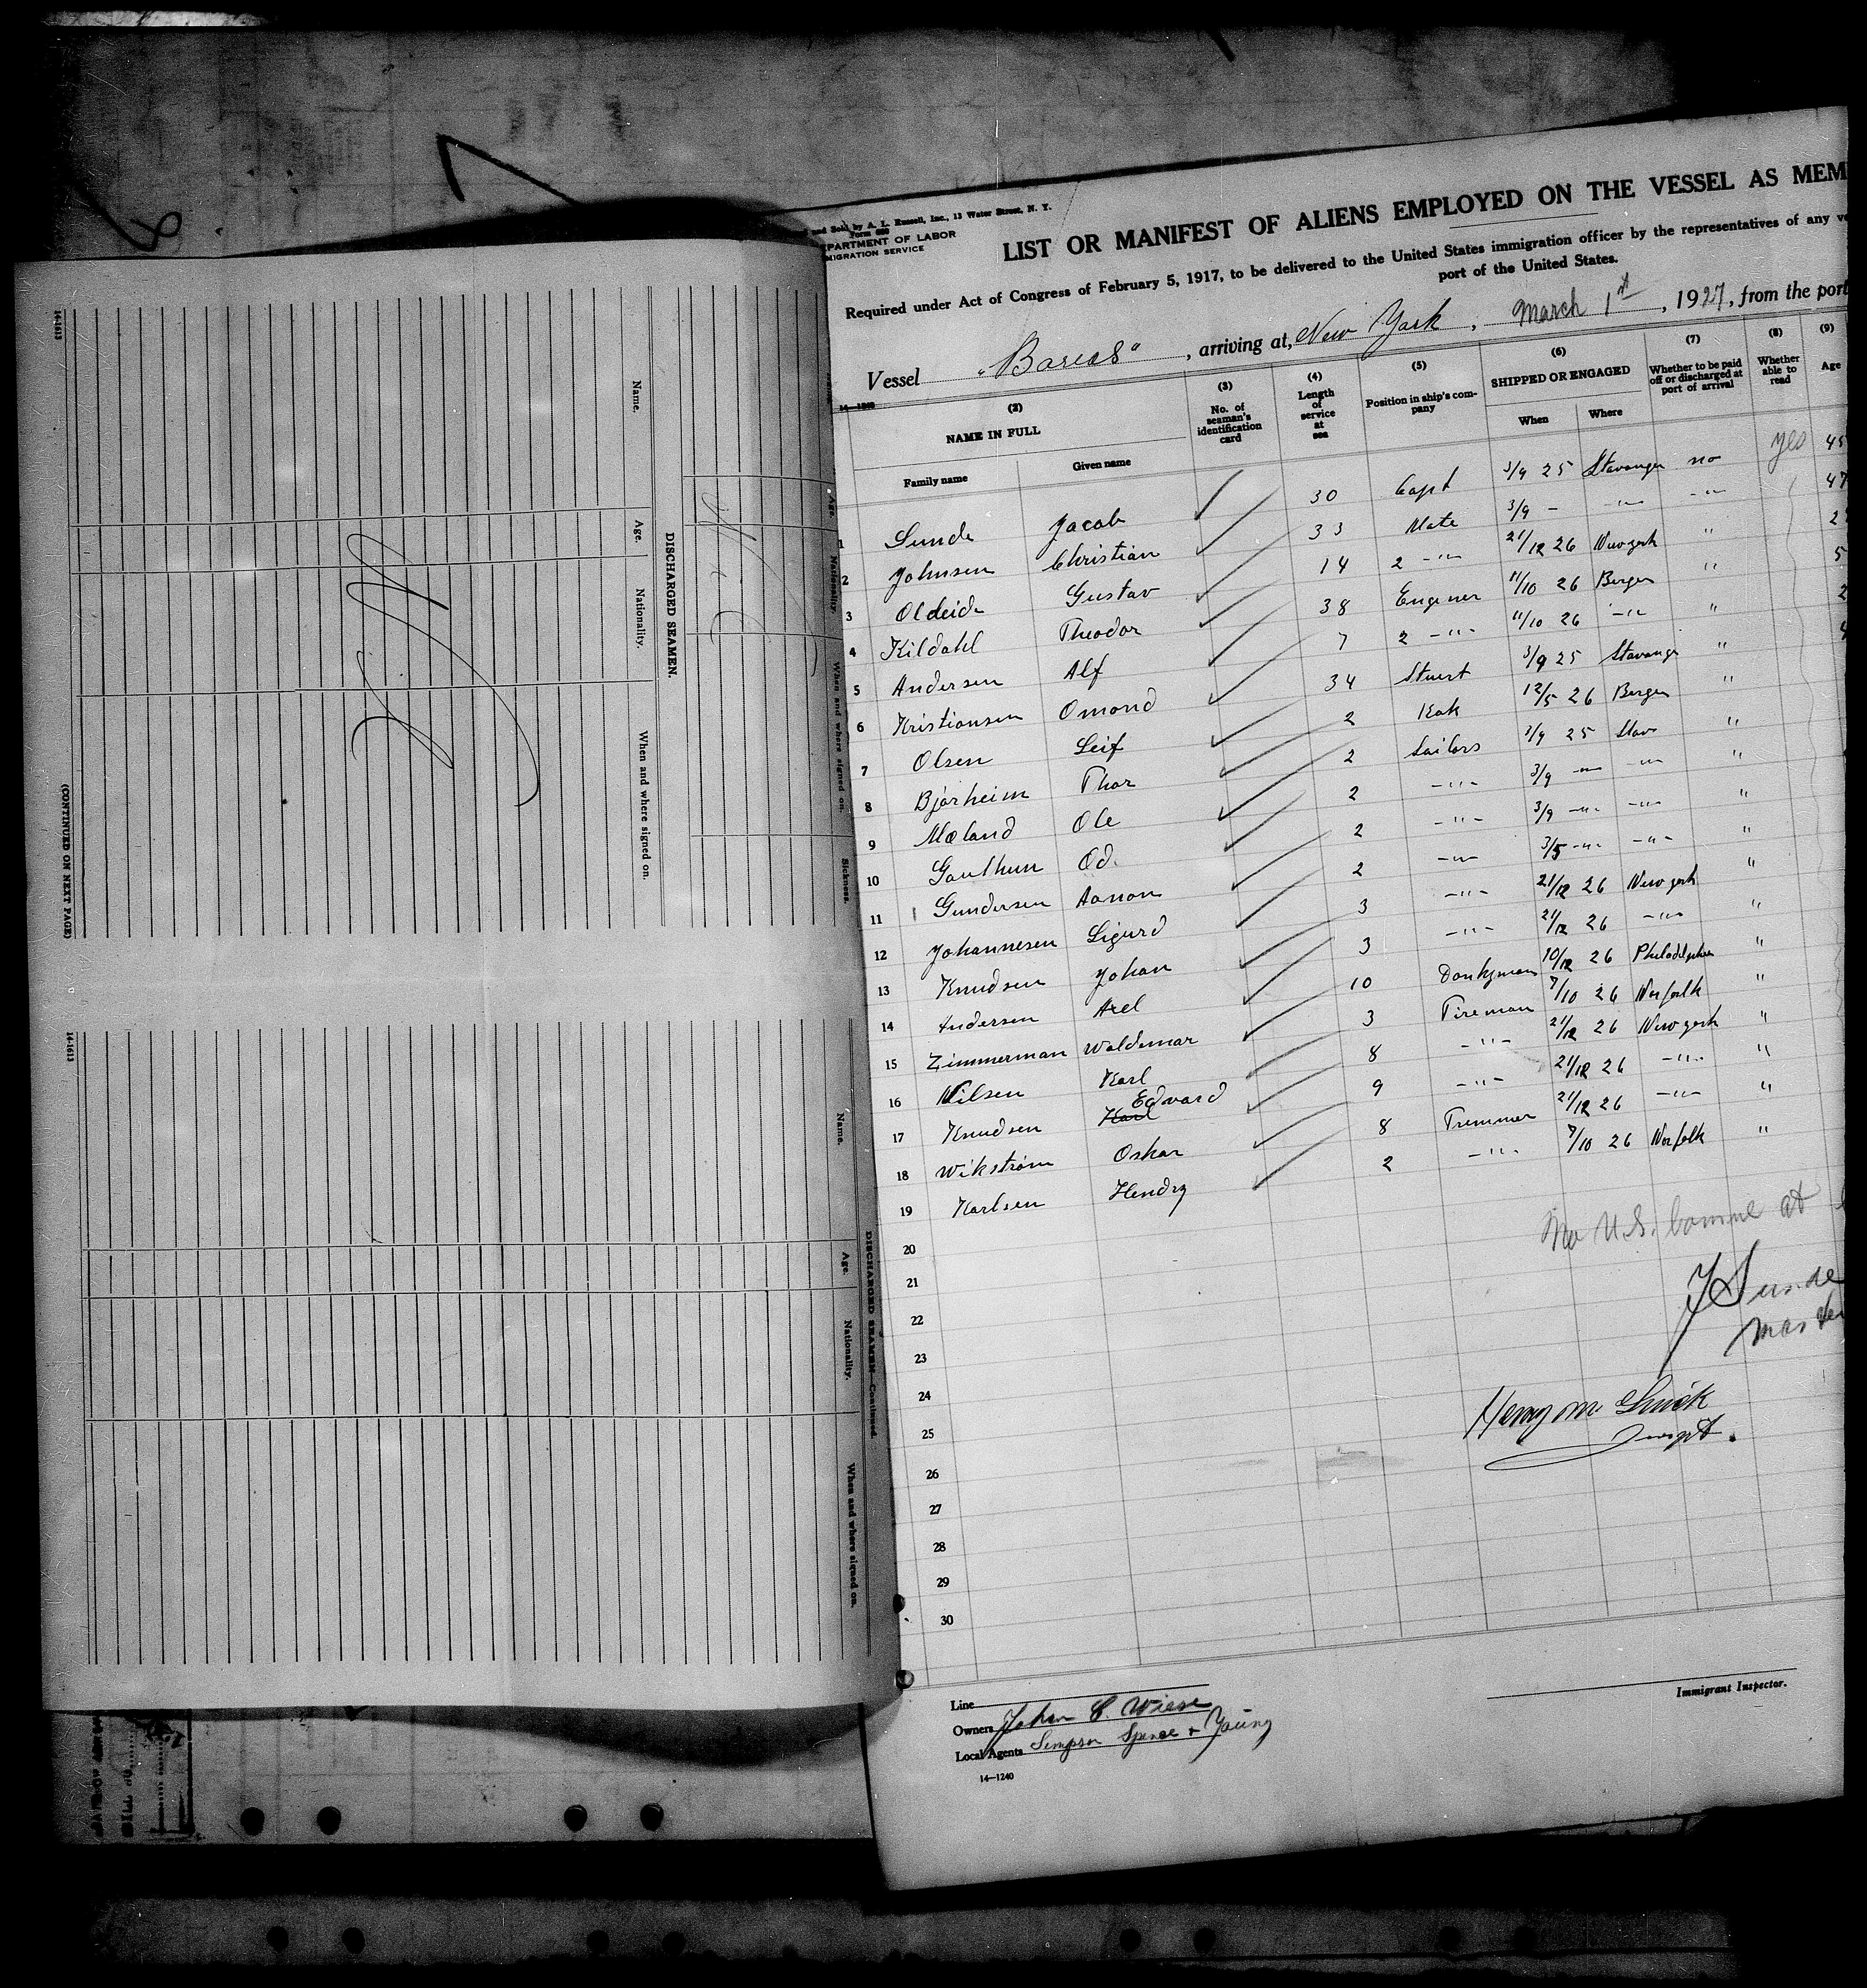 14-1613
Name.
Age.
Nationality.
When and where signed on.
DISCHARGED SEAMEN.
(CONTINUED ON NEXT PAGE)
Age.
Nationality.
When and where signed on.
Sickness.
14-1613
Name.
Age.
Nationality.
When and where signed on.
DISCHARGED SEAMEN—Continued.
and Sold by A. L. Russell, Inc., 13 Water Street, N. Y.
Form 680
DEPARTMENT OF LABOR
IMMIGRATION SERVICE
LIST OR MANIFEST OF ALIENS EMPLOYED ON THE VESSEL AS MEM
Required under Act of Congress of February 5, 1917, to be delivered to the United States immigration officer by the representatives of any ve
port of the United States.
Vessel "Boreas", arriving at, New York, March 1st, 1927, from the port
14—1240
(2) NAME IN FULL
Family name Given name
(3) No. of seaman's identification card
(4) Length of service at sea
(5) Position in ship's company
(6) SHIPPED OR ENGAGED
When Where
(7) Whether to be paid off or discharged at port of arrival
(8) Whether able to read
(9) Age
1 Sunde Jacob 30 Capt 3/9 25 Stavanger no yes 45
2 Johnsen Christian 33 Mate 3/9 - -"- -"- 47
3 Oldeide Gustav 14 2 -"- 21/12 26 New york " 2
4 Kildahl Theodor 38 Enginer 11/10 26 Bergen " 5
5 Andersen Alf 7 2 -"- 11/10 26 -"- " 2
6 Kristiansen Omond 34 Stuert 3/9 25 Stavanger " 4
7 Olsen Leif 2 Kok 12/5 26 Bergen "
8 Bjørheim Thor 2 Sailors 3/9 25 Stav "
9 Mæland Ole 2 -"- 3/9 -"- -"- "
10 Gauthun Od. 2 -"- 3/9 -"- -"- "
11 Gundersen Aanon 2 -"- 3/5 -"- -"- "
12 Johannesen Sigurd 3 -"- 21/12 26 New york "
13 Knudsen Johan 3 -"- 21/12 26 -"- "
14 Andersen Axel 10 Donkyman 10/12 26 Philadelphia "
15 Zimmerman Waldemar 3 Fireman 7/10 26 Norfolk "
16 Nilsen Karl 8 -"- 21/12 26 New york "
17 Knudsen Karl Edvard 9 -"- 21/12 26 -"- "
18 Wikstrøm Oskar 8 Tremmer 21/12 26 -"- "
19 Karlsen Hendry 2 -"- 7/10 26 Norfolk "
20
21
22
23
24
25
26
27
28
29
30
No U.S. at
J Sunde
master
Line
Owners John C. Wiese
Local Agents Simpson Spence + Young
14—1240
Immigrant Inspector.